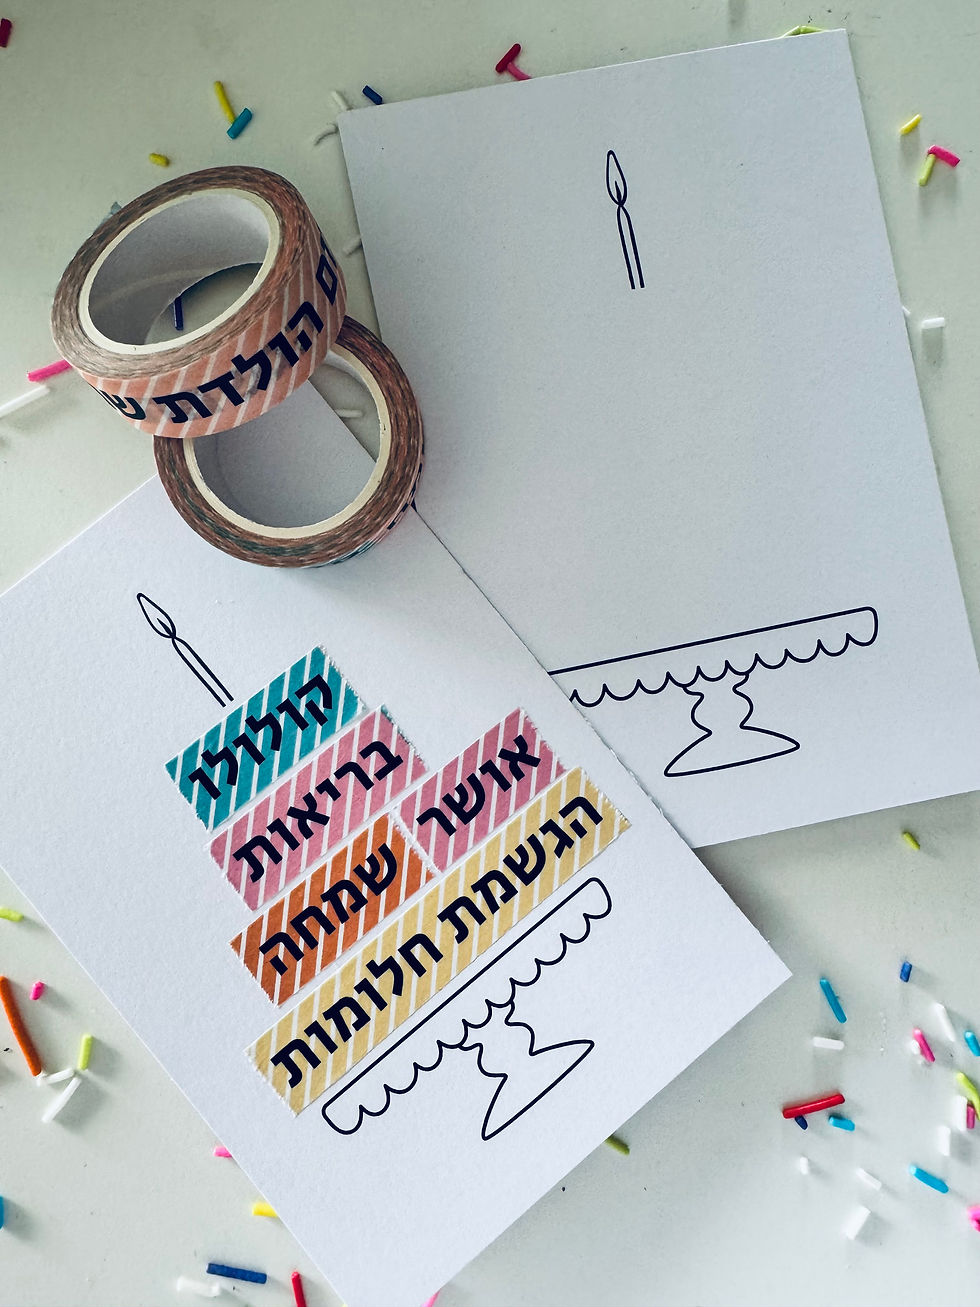 הולדת
קולולו
בריאות
אושר
שמחה
הגשמת חלומות